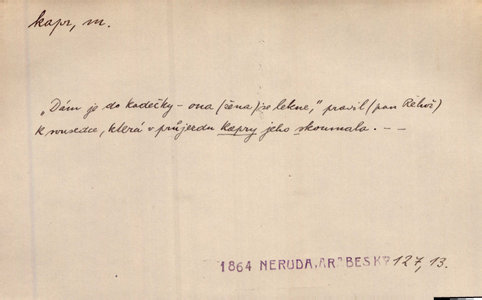 kapr, m.
„Dám je do kadečky – ona (žena) se lekne," pravil (pan Řehoř)
k sousedce, která v průjezdu kapry jeho skoumala. – –
1864 NERUDA, AR. BESK? 127, 13.